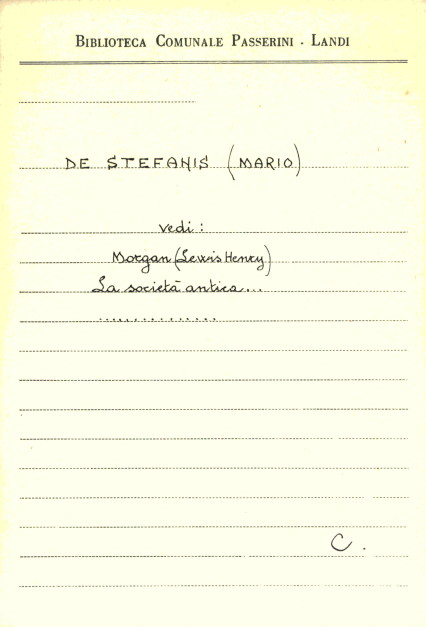 BIBLIOTECA COMUNALE PASSERINI - LANDI
DE STEFANIS (MARIO)
vedi:
Morgan (Lewis Henry)
La società antica...
..............
C.